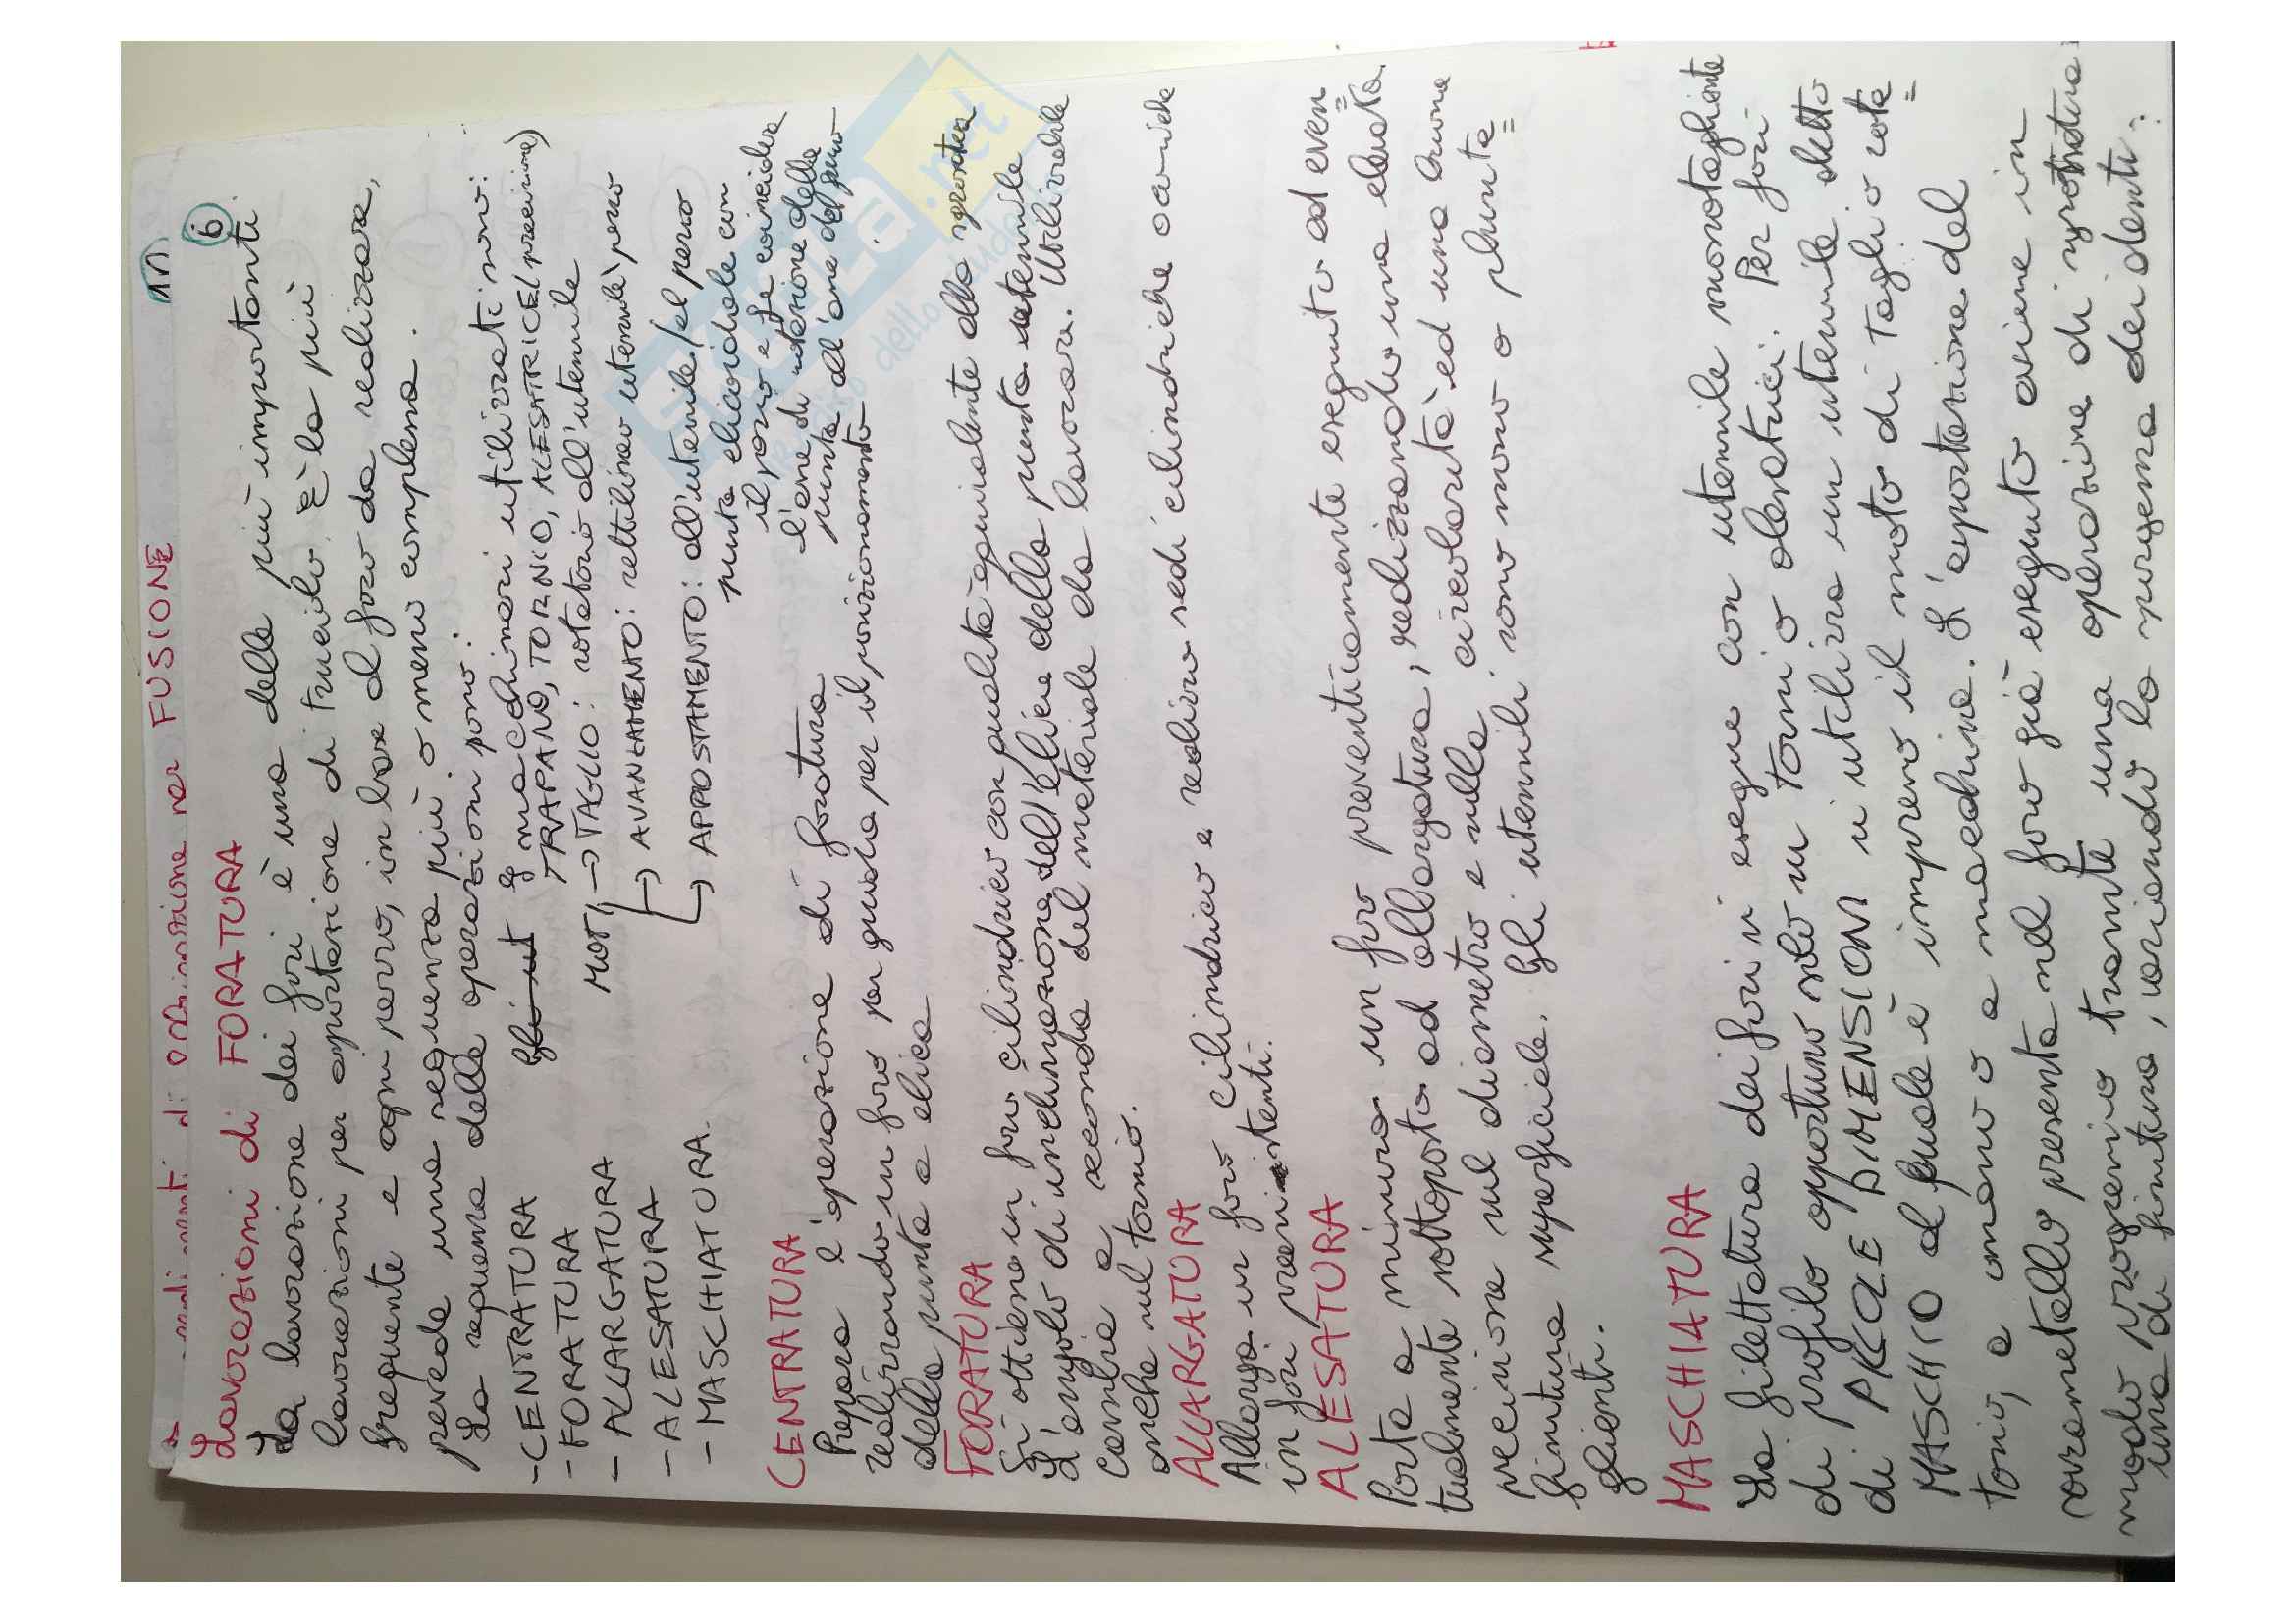 di per FUSIONE
11
6
Lavorazioni di FORATURA
La lavorazione dei fori è una delle più importanti
lavorazioni per asportazione di truciolo. È la più
frequente e ogni pezzo, in base al foro da realizzare,
prevede una sequenza più o meno complessa.
La sequenza delle operazioni sono:
-CENTRATURA
- FORATURA
- ALLARGATURA
- ALESATURA
- MASCHIATURA.
macchinari utilizzati sono:
TRAPANO, TORNIO, ALESATRICE (precisione)
MOTI → TAGLIO: rotatorio all'utensile
→ AVANZAMENTO: rettilineo utensile\pezzo
→ APPOSTAMENTO: all'utensile/al pezzo
punta elicoidale con
il pezzo e fa coincidere
l'asse di rotazione della
punta all'asse del foro
CENTRATURA
Prepara l'operazione di foratura
realizzando un foro per guida per il posizionamento
della punta a elica
FORATURA
Si ottiene un foro cilindrico con qualità equivalente alla sgrossatura
L'angolo di inclinazione dell'elica della punta utensile
cambia a seconda del materiale da lavorare. Utilizzabile
anche sul tornio.
ALLARGATURA
Allarga un foro cilindrico e realizza sedi cilindriche coniche
in fori preesistenti.
ALESATURA
Porta a misura un foro preventivamente eseguito ed even=
tualmente sottoposto ad allargatura, realizzando una elevata
precisione sul diametro e sulla circolarità ed una buona
finitura superficiale. Gli utensili sono mono o plurita=
glienti.
MASCHIATURA
La filettatura dei fori si esegue con utensile monotagliente
di profilo opportuno solo su torni o alesatrici. Per fori
di PICCOLE DIMENSIONI si utilizza un utensile detto
MASCHIO al quale è impresso il moto di taglio rota=
torio, a mano o macchina. L'asportazione del
sovrametallo presente nel foro già eseguito avviene in
modo progressivo tramite una operazione di sgrossatura
una di finitura, variando la sporgenza dei denti.